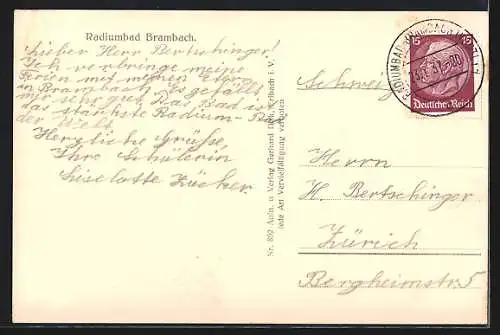 Radiumbad Brambach.
Lieber Herr Bertschinger!
Ich verbringe meine
Ferien mit meinen Eltern
in Brambach. Es gefällt
mir sehr gut. Das Bad ist
das stärkste Radium-Bad
der Welt.
Herzliche Grüße,
Ihre Schülerin
Liselotte Zücker.
Nr. 892 Aufn. u Verlag Gerhard
jede Art Vervielfältigung verboten
RADIUMBAD BRAMBACH
15 15
Deutsches Reich
Schweiz
Herrn
H. Bertschinger
Zürich
Bergheimstr. 5